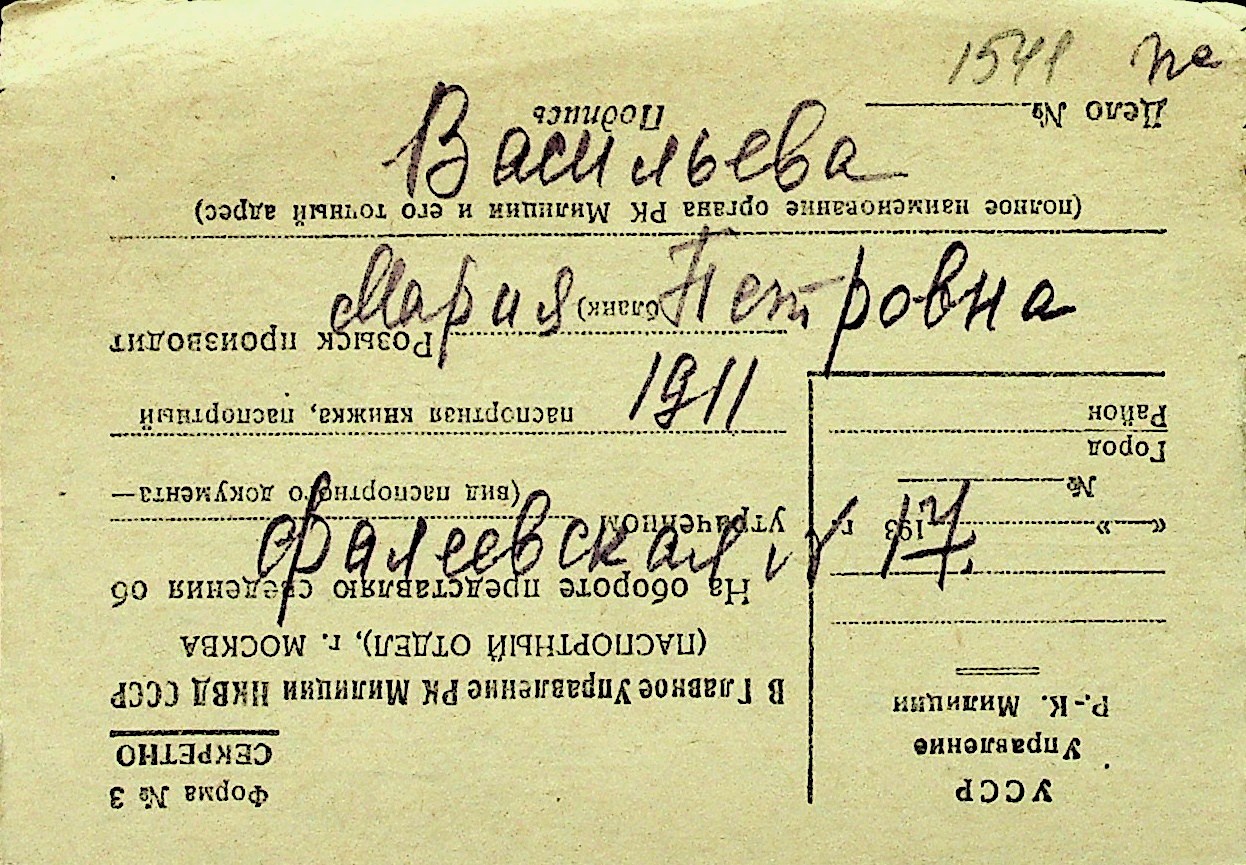 1541
Васильева
Мария Петровна
1911
Фалеевская № 17.
УССР
Управление
Р.-К. Милиции
« » 193 г.
№
Город
Район
Форма № 3
СЕКРЕТНО
В Главное Управление РК Милиции НКВД СССР
(ПАСПОРТНЫЙ ОТДЕЛ), г. МОСКВА
На обороте представляю сведения об
утраченном
(вид паспортного документа—
паспортная книжка, паспортный
бланк)
Розыск производит
(полное наименование органа РК Милиции и его точный адрес)
Дело № Подпись